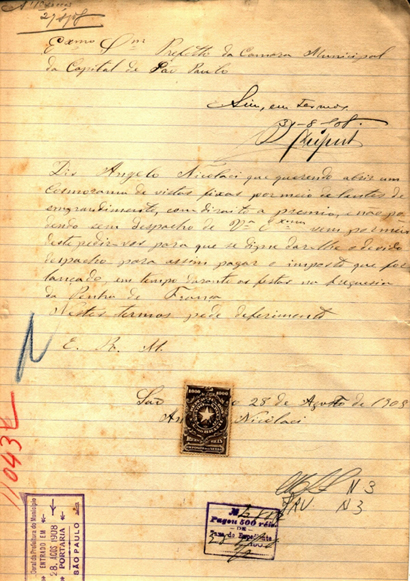 27-8-908
Exmo Snr Prefeito da Camera Municipal
da Capital de São Paulo
Sim, em termos
31-8-908.
Diz Angelo Nicolaci que querendo abrir um
Cosmorama de vistas fixas por meio de lentes de
engrandimento, com direito a premio, e não po
dendo sem despacho de Va Exma vem por meio
deste pedir vos para que se digne dar lhe o devido
despacho para assim pagar o imposto que for
lançado, em tempo durante as festas na freguesia
da Penha de França
Nestes termos pede deferimento
E. R. M.
São Paulo 28 de Agosto de 1908
Angelo Nicolaci
11043
N 3
N 3
Geral da Prefeitura do Municipio
ENTRADO EM
28 AGO 1908
PORTARIA
SÃO PAULO
No
Pagou 500 réis
DE
Taxa de Expediente